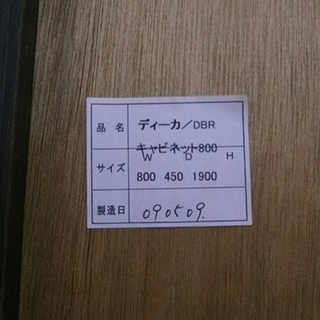 品名 ディーカ/DBR
キャビネット800
W D H
サイズ 800 450 1900
製造日 090509.